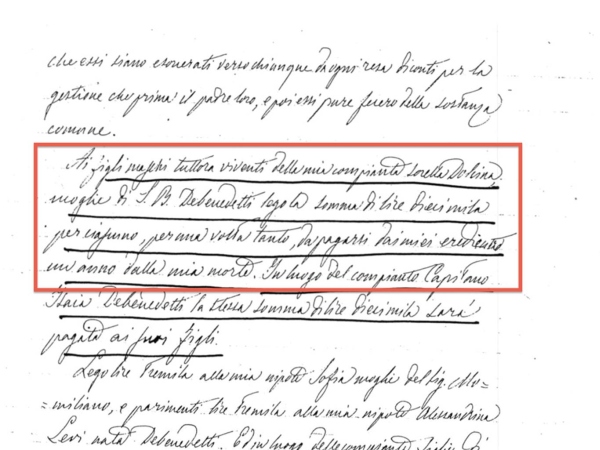 che essi siano esonerati verso chiunque da ogni resa di conti per la
gestione che prima il padre loro, e poi essi pure fecero della sostanza
comune.
Ai figli maschi tuttora viventi della mia compianta sorella Dolcina,
moglie di S. B. Debenedetti lego la somma di lire diecimila
per ciascuno, per una volta tanto, da pagarsi dai miei eredi entro
un anno dalla mia morte. In luogo del compianto Capitano
Isaia Debenedetti la stessa somma di lire diecimila sarà
pagata ai suoi figli.
Lego lire tremila alla mia nipote Sofia moglie del Sig. Mo=
=miliano, e parimenti lire tremila alla mia nipote Alessandrina
Levi nata Debenedetti. Ed in luogo